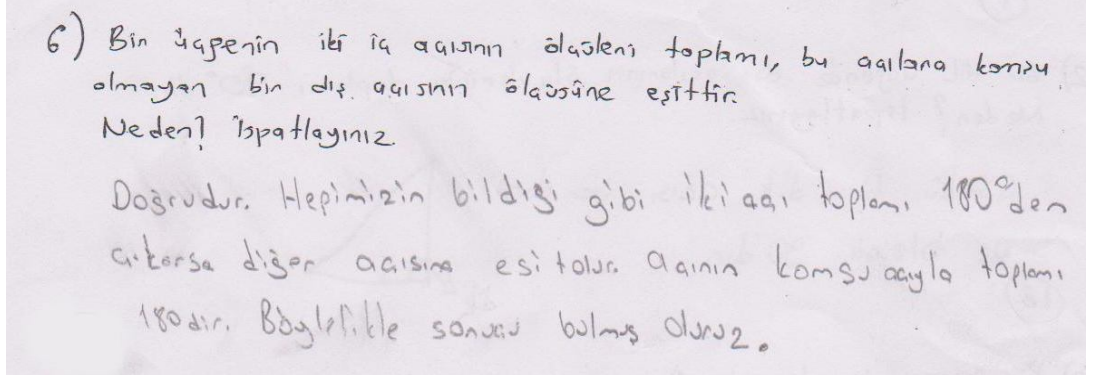 6) Bir üçgenin iki iç açısının ölçüleri toplamı, bu açılara komşu
olmayan bir dış açısının ölçüsüne eşittir.
Neden? İspatlayınız.
Doğrudur. Hepimizin bildiği gibi iki açı toplamı 180° den
çıkarsa diğer açısına eşit olur. Açının komşu açıyla toplamı
180 dir. Böylelikle sonucu bulmuş oluruz.